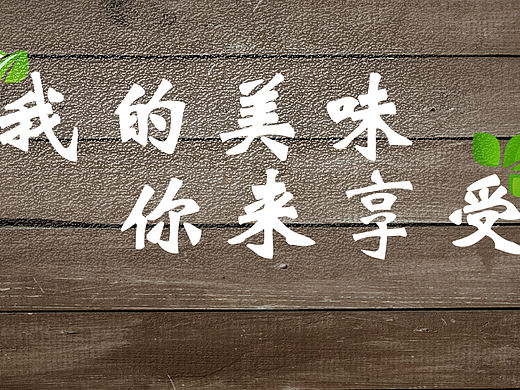 我的美味
你来享受